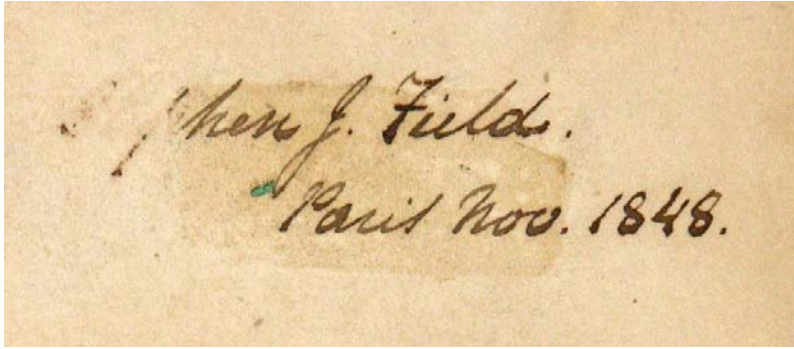 Stephen J. Field.
Paris Nov. 1848.